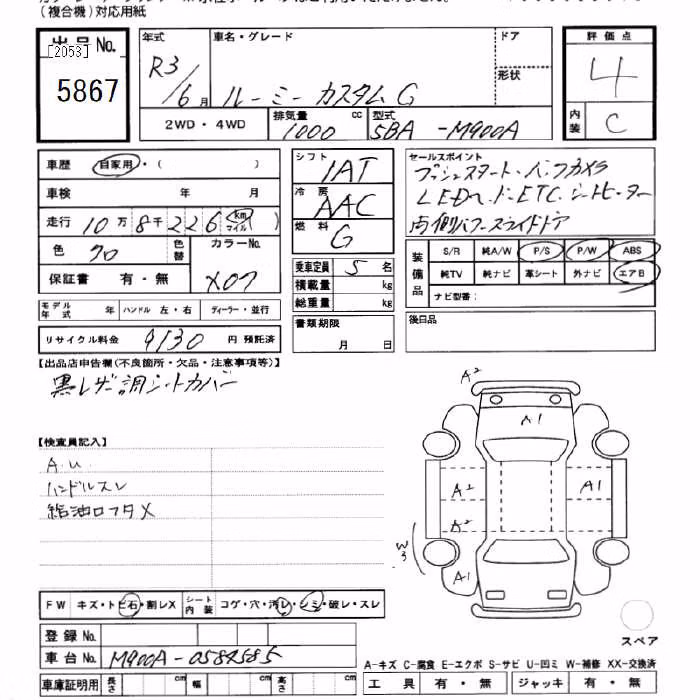 (複合機)対応用紙
出品 No.
[2053]
5867
年式
R3/6月
車名・グレード
ルーミー カスタム G
ドア
形状
評価点
4
内装
C
2WD・4WD
排気量
1000 cc
型式
5BA -M900A
車歴 自家用・( )
車検 年 月
走行 10万 8千 226 km マイル
色 クロ
色替
カラーNo.
X07
保証書 有・無
モデル年式 年 ハンドル 左・右 ディーラー・並行
リサイクル料金 9130 円 預託済
シフト
IAT
冷房
AAC
燃料
G
乗車定員 5 名
積載量 kg
総重量 kg
書類期限
月 日
セールスポイント
プッシュスタート・バックカメラ
LEDヘッド・ETC・シートヒーター
両側パワースライドドア
装備品
S/R 純A/W P/S P/W ABS
純TV 純ナビ 革シート 外ナビ エアB
ナビ型番:
後日品
【出品店申告欄(不良箇所・欠品・注意事項等)】
黒レザー調シートカバー
【検査員記入】
A.U.
ハンドルスレ
給油口フタX
A2
A1
A2
A1
A2
W3
A1
FW キズ・トビ石・割レX
シート内装 コゲ・穴・汚レ・シミ・破レ・スレ
登録 No.
車台 No. M900A-0584585
車庫証明用 長さ cm 幅 cm 高さ cm
スペア
A-キズ C-腐食 E-エクボ S-サビ U-凹ミ W-補修 XX-交換済
工具 有・無 ジャッキ 有・無